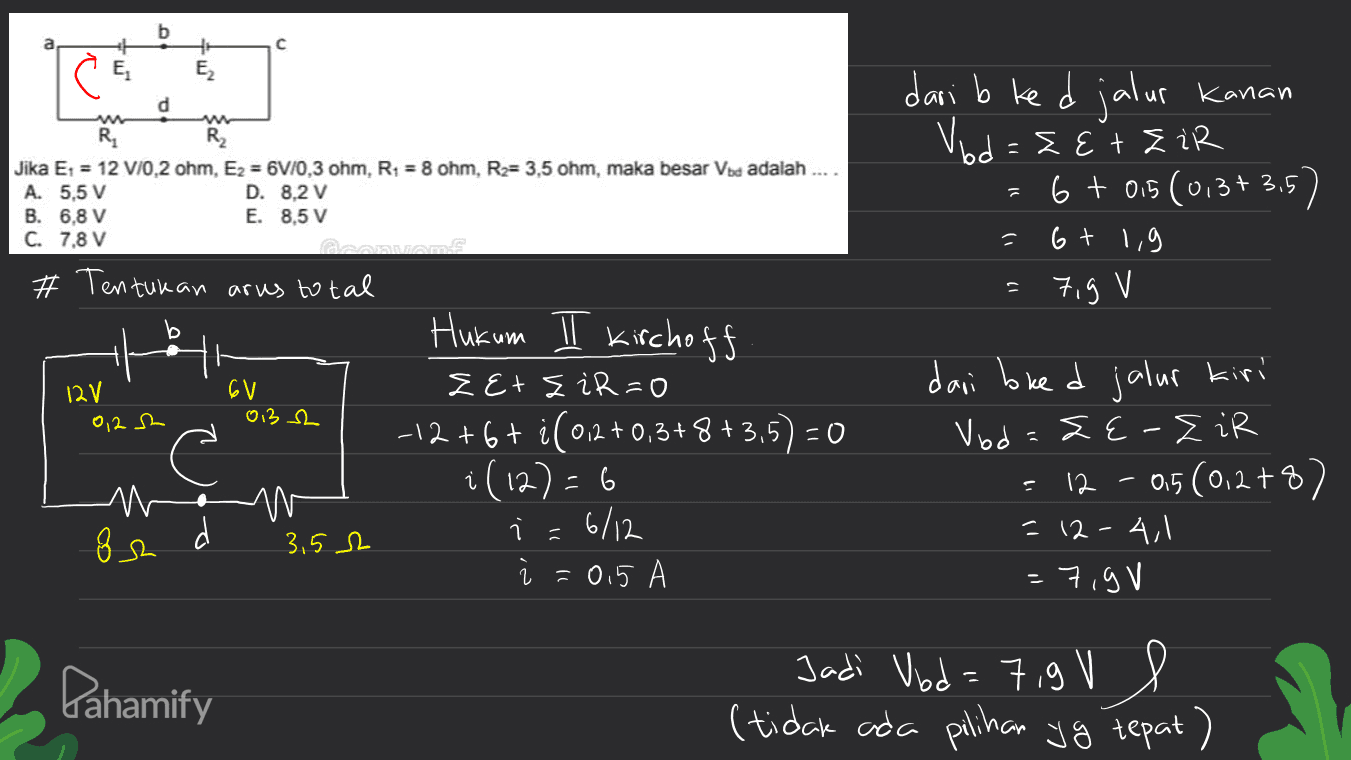 a b c
E₁ E₂
d
R₁ R₂
Jika E₁ = 12 V/0,2 ohm, E₂ = 6V/0,3 ohm, R₁ = 8 ohm, R₂= 3,5 ohm, maka besar Vbd adalah ... .
A. 5,5 V D. 8,2 V
B. 6,8 V E. 8,5 V
C. 7,8 V
# Tentukan arus total
b
12V 6V
0,2 Ω 0,3 Ω
8 Ω d 3,5 Ω
Hukum II kirchoff
Σ Ɛ + Σ iR = 0
-12 + 6 + i(0,2 + 0,3 + 8 + 3,5) = 0
i(12) = 6
i = 6/12
i = 0,5 A
dari b ke d jalur kanan
Vbd = Σ Ɛ + Σ iR
= 6 + 0,5 (0,3 + 3,5)
= 6 + 1,9
= 7,9 V
dari b ke d jalur kiri
Vbd = Σ Ɛ - Σ iR
= 12 - 0,5 (0,2 + 8)
= 12 - 4,1
= 7,9 V
Jadi Vbd = 7,9 V
(tidak ada pilihan yg tepat)
Pahamify